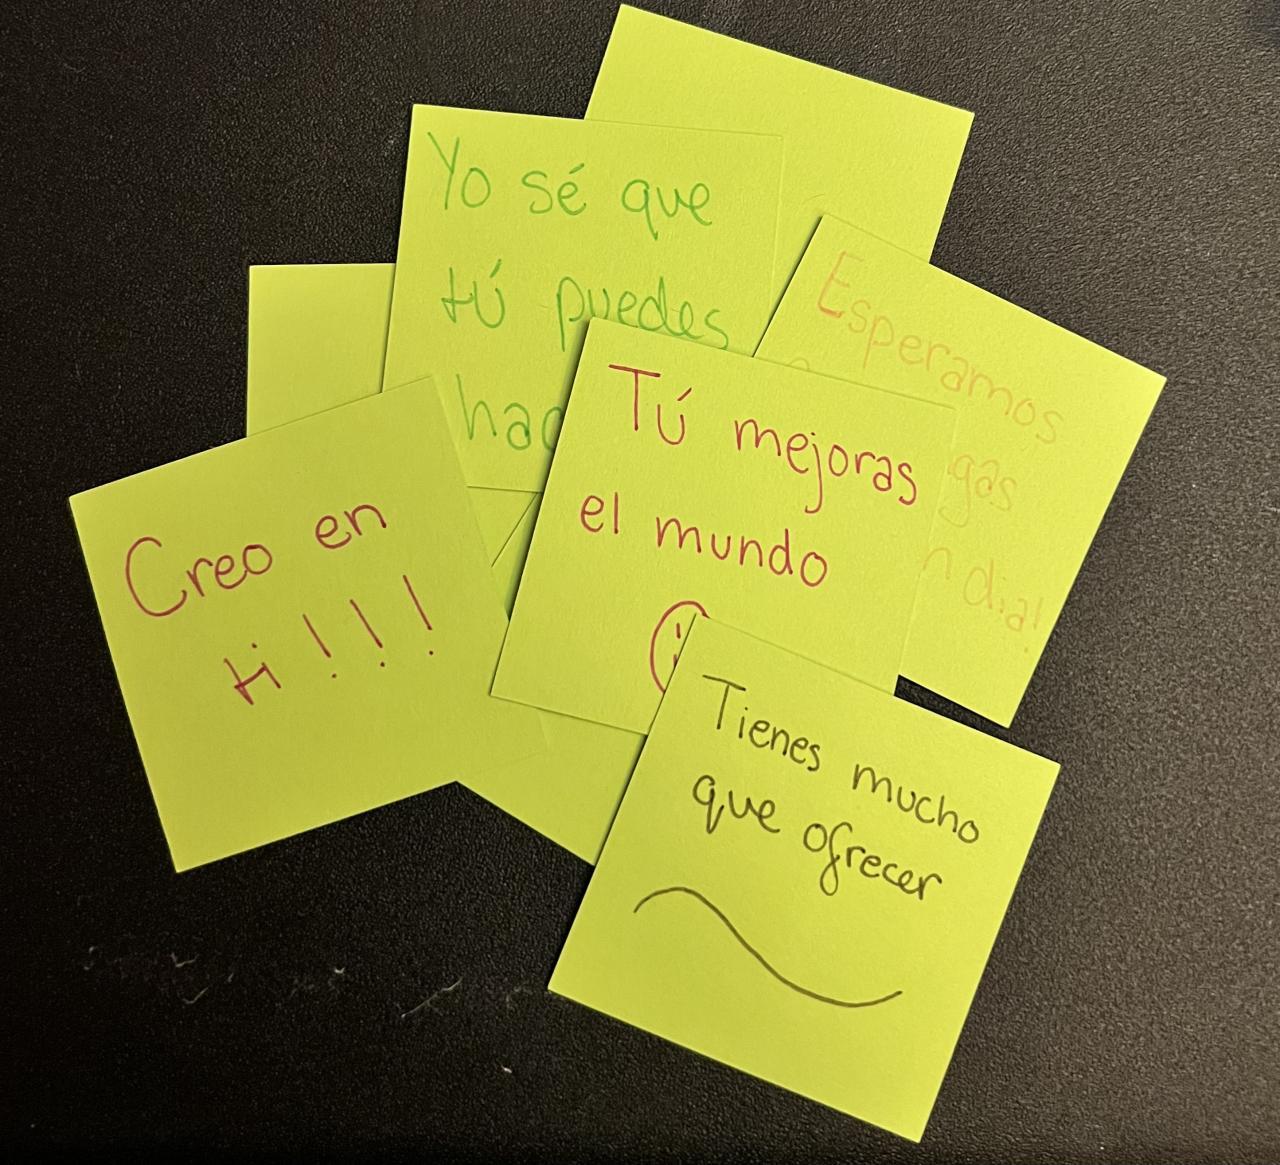 Yo sé que
tú puedes
Esperamos
Tú mejoras
el mundo
Creo en
ti!!!
Tienes mucho
que ofrecer